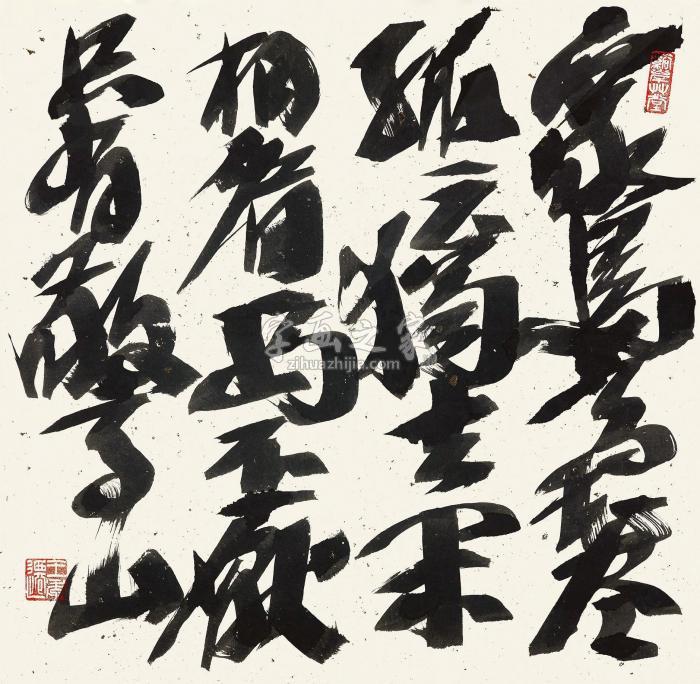 眾鳥高飛盡
孤云獨去闲
相看两不厭
只有敬亭山
字画之家
zihuazhijia.com